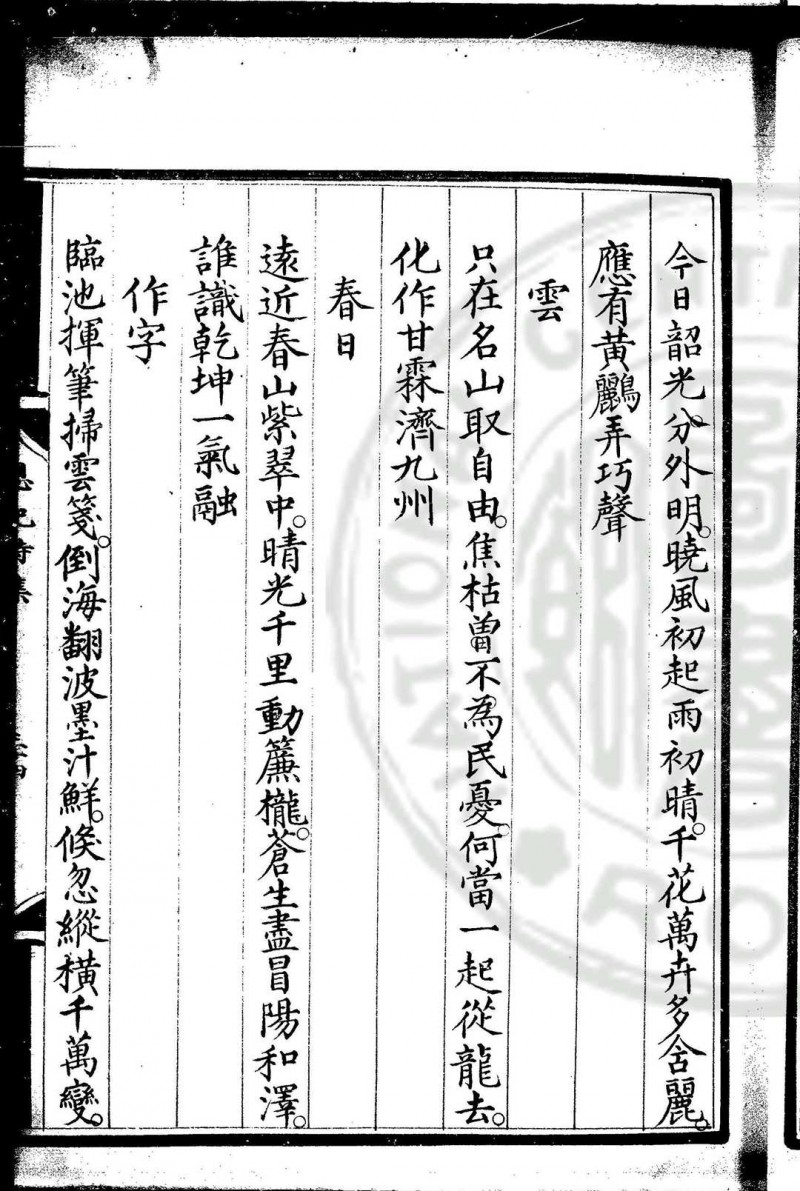 今日韶光分外明。曉風初起雨初晴。千花萬卉多含麗。
應有黃鸝弄巧聲
雲
只在名山取自由。焦枯曽不為民憂。何當一起從龍去。
化作甘霖濟九州
春日
遠近春山紫翠中。晴光千里動簾櫳。蒼生盡冒陽和澤。
誰識乾坤一氣融
作字
臨池揮筆掃雲箋。倒海翻波墨汁鮮。倏忽縱橫千萬變。